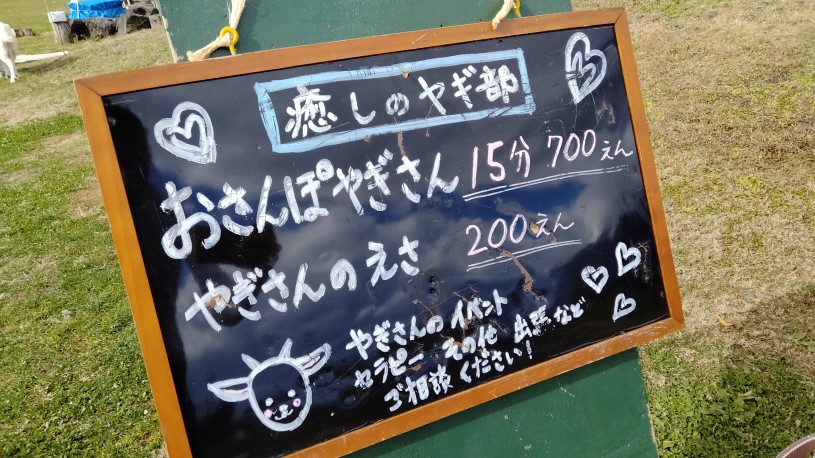 癒しのヤギ部
おさんぽやぎさん 15分 700えん
やぎさんのえさ 200えん
やぎさんのイベント
セラピー その他 出張など
ご相談ください！